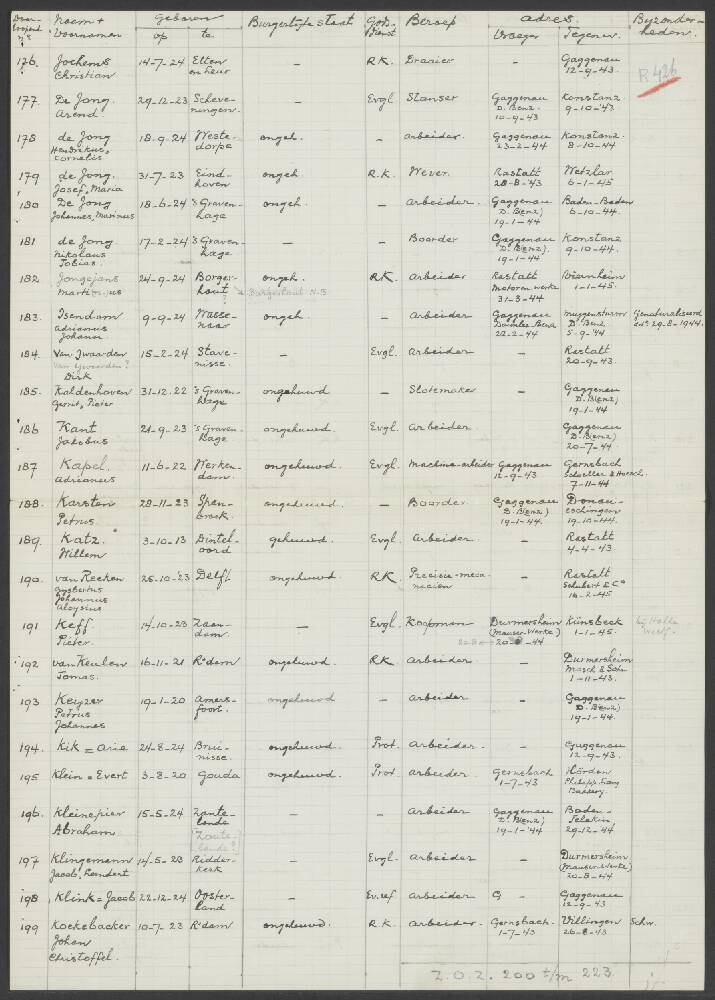 Naam + Voornamen Geboren op te Burgerlijke staat Gods-dienst Beroep adres. Vroeger Tegenw. Byzonder-heden.
R 426
176. Jochems Christian 14-7-24 Etten en Leur - R.K. Draaier - Gaggenau 12-9-43.
177. De Jong. Arend. 29-12-23 Scheve-ningen. - Evgl. Stanser Gaggenau D. Benz. 10-9-43 Konstanz. 9-10-43
178 de Jong Hendrikus, Cornelis 18-9-24 Weste-dorpe ongeh. - arbeider. Gaggenau 23-2-44 Konstanz. 8-10-44
179 de Jong. Josef, Maria 31-7-23 Eind-hoven ongeh R.K. Wever. Rastatt 28-8-'43 Wetzlar 6-1-45
180 De Jong Johannes, Marinus 18-6-24 's Graven-hage ongeh. - arbeider. Gaggenau D. Benz) 19-1-44 Baden-Baden 6-10-44.
181 de Jong Nikolaus Tobias. 17-2-24 's Graven-hage - - Boorder Gaggenau D. Benz) 19-1-44 Konstanz 9-10-44.
182 Jongejans Martinus 24-9-24 Borger-hout ? Burgerhout N-B ongeh. RK. Arbeider Rastatt Motoren werke 31-3-44 Wiernheim 1-1-45.
183. Isendam Adrianus Johann. 9-9-24 Wasse-naar ongeh - arbeider Gaggenau Daimler Benz 22-2-44 Muggensturm D. Benz 5-9-'44 Genaturaliseerd 29-8-1944.
184. Van Jwaarden van Ijwaarden? Dirk 15-2-24 Stave-nisse. - Evgl. Arbeider - Rastatt 20-9-43.
185. Kaldenhoven Gerrit, Pieter 31-12-22 's Graven-hage ongehuwd - Slotemaker - Gaggenau D. Benz) 19-1-44
186 Kant Jakobus 21-9-23 's Graven-hage ongehuwd. Evgl. Arbeider. Gaggenau D. Benz) 20-7-44
187 Kapel. Adrianus 11-6-22 Werken-dam. ongehuwd. Evgl. Machine-arbeider Gaggenau 12-9-43 Gernsbach Schoeller & Hoesch. 7-11-44
188. Karsten Petrus 28-11-23 Span-broek. ongehuwd. - Boorder Gaggenau D. Benz) 19-1-44. Donau-eschingen 19-10-44.
189. Katz. Willem 3-10-13 Dintel-oord gehuwd. Evgl. Arbeider. - Rastatt 4-4-43.
190. van Reeken Gysbertus Johannus Aloysius 26-10-'23 Delft ongehuwd. RK. Precisie-meca nicien - Rastatt Schubert & Co 16-2-45
191 Keff Pieter. 14-10-23 Zaan-dam. - Evgl. Koopman Durmersheim (Mauser-Werke) -44 Künsbeck 1-1-45. bij Halle Westf.
192 van Keulen Tomas. 16-11-21 R'dam ongehuwd. RK. Arbeider. - Durmersheim Masch & Sohn 1-11-43.
193 Keyzer Petrus Johannes 19-1-20 Amers-foort. ongehuwd - arbeider - Gaggenau D. Benz) 19-1-44.
194. Kik = Arie 24-8-24 Brui-nisse. ongehuwd. Prot. arbeider. - Gaggenau 12-9-43.
195 Klein = Evert 3-8-20 Gouda ongehuwd. Prot arbeider. Gernsbach 1-7-43 Hörden Philipp Fang
196. Kleinepier Abraham 15-5-24 Zante-lande [Zoute-lande?] - - Arbeider Gaggenau D. Benz) 19-1-'44 Baden- 29-12-44
197 Klingemann Jacob, Leendert 14-5-23 Ridder-kerk - Evgl. arbeider - Durmersheim (Mauser-Werke) 20-8-44
198 Klink = Jacob 22-12-24 Ooster-land - Ev.ref. arbeider G - Gaggenau 12-9-43
199 Koekebacker Johan Christoffel. 10-7-23 R'dam ongehuwd. R.K. arbeider. Gernsbach. 1-7-43 Villingen 26-8-43 Schw.
Z.O.Z. 200 t/m 223.